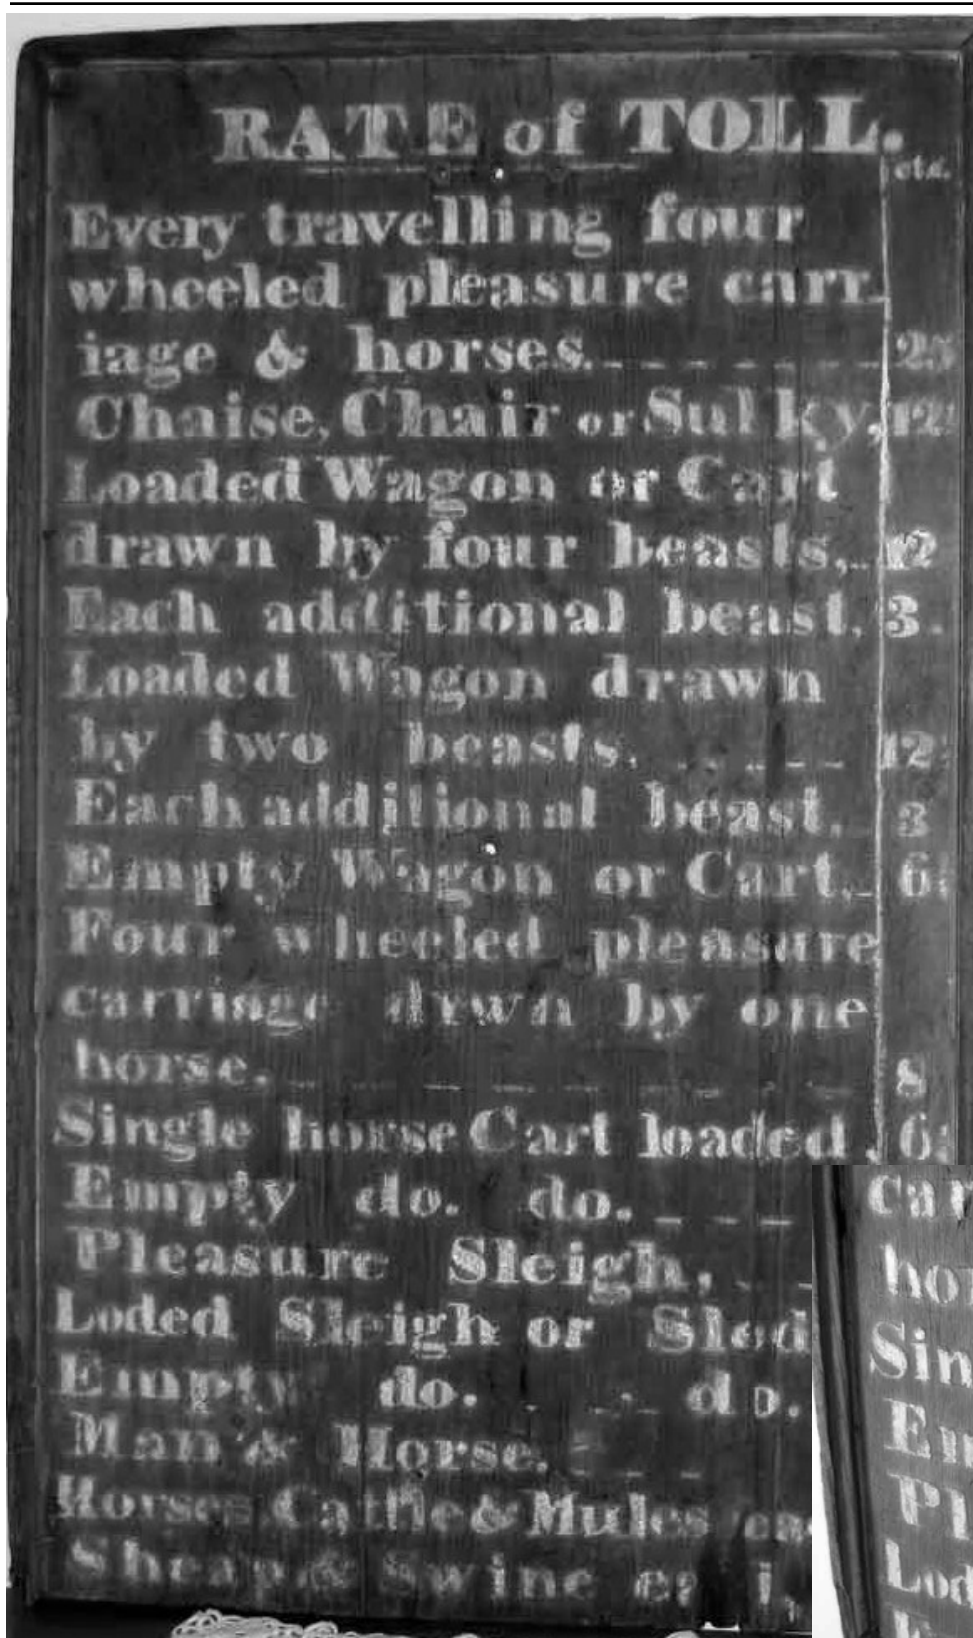 RATE of TOLL.
cts.
Every travelling four
wheeled pleasure carr
iage & horses. 25
Chaise, Chair or Sulky, 12
Loaded Wagon or Cart
drawn by four beasts, 12
Each additional beast, 3.
Loaded Wagon drawn
by two beasts. 12
Each additional beast. 3
Empty Wagon or Cart, 6
Four wheeled pleasure
carriage drwn by one
horse. 8
Single horse Cart loaded, 6
Empty do. do.
Pleasure Sleigh,
Loded Sleigh or Sled
Empty do. do.
Man & Horse.
Horses Cattle & Mules
Sheap & Swine
Car
hor
Sin
Em
Pl
Lod